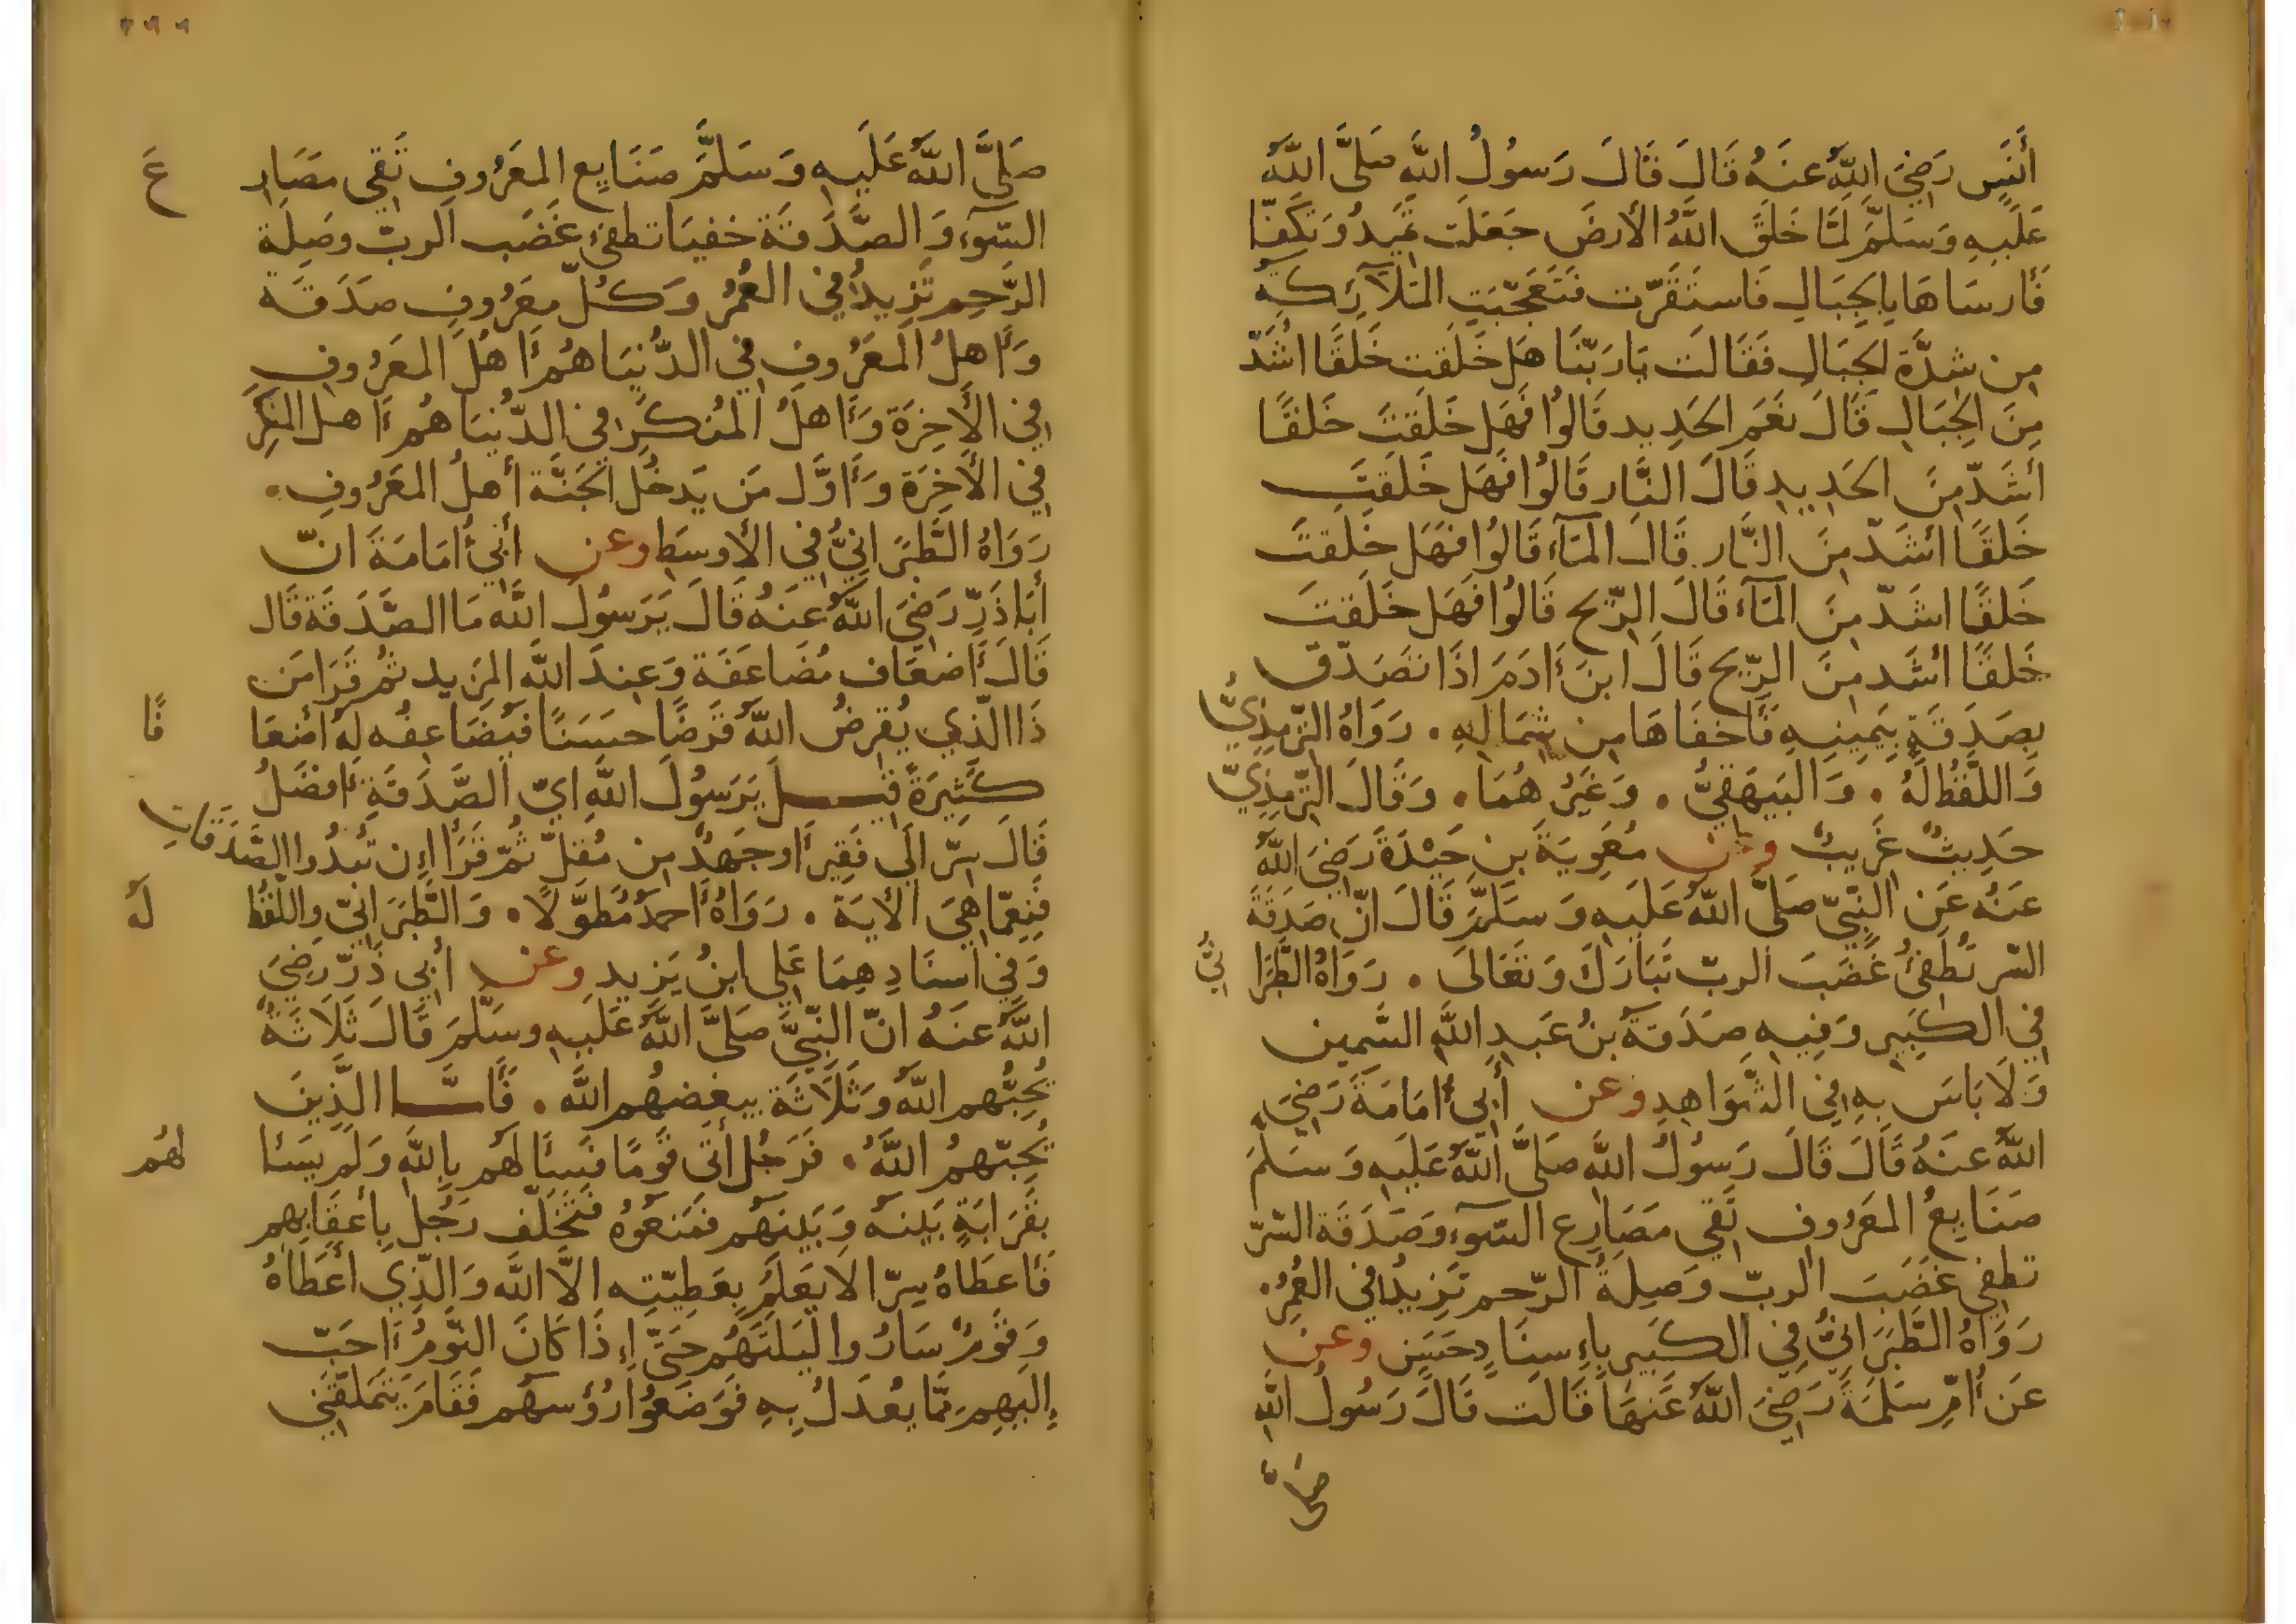 أَنَسٍ رَضِيَ اللَّهُ عَنهُ قَالَ قَالَ رَسُولُ اللَّهِ صَلَّى اللَّهُ
عَلَيهِ وَسَلَّمَ لَمَّا خَلَقَ اللَّهُ الأَرضَ جَعَلَت تَمِيدُ وَتَكَفَّا
فَأَرسَاهَا بِالجِبَالِ فَاستَقَرَّت فَتَعَجَّبَتِ المَلَآئِكَةُ
مِن شِدَّةِ الجِبَالِ فَقَالَت يَارَبَّنَا هَل خَلَقتَ خَلقًا اشَدّ
مِنَ الجِبَالِ قَالَ نَعَم الحَدِيد قَالُوا فَهَل خَلَقتَ خَلقًا
أشَدّ مِنَ الحَدِيدِ قَالَ النَّار قَالُوا فَهَل خَلَقتَ
خَلقًا اشَدّ مِنَ النَّارِ قَالَ المَآءَ قَالُوا فَهَل خَلَقتَ
خَلقًا اشَدّ مِنَ المَآءِ قَالَ الرِّيح قَالُوا فَهَل خَلَقتَ
خَلقًا أشَد مِنَ الرِّيحِ قَالَ ابنَ ءَادَمَ اذَا تَصَدَّقَ
بِصَدَقَةٍ بِيَمِينِهِ فَأَخفَاهَا مِن شِمَالِهِ . رَوَاهُ التِّرمِذِيُّ
وَاللَّفظُ لَهُ . وَالبَيهَقِيُّ . وَغَيرُهُمَا . وَقَالَ التِّرمِذِيّ
حَدِيثٌ غَرِيبٌ وعن مُعَوِيَةَ بنِ حَيْدَةَ رَضِيَ اللَّهُ
عَنهُ عَنِ النَّبِيّ صَلَّى اللَّهُ عَلَيهِ وَسَلَّمَ قَالَ انّ صَدَقَةَ
السّر تُطفِئُ غَضَبَ الربّ تَبَارَكَ وَتَعَالَى . رَوَاهُ الطَّبَرَا نِيُّ
فِي الكَبِيرِ وَفِيهِ صَدَقَةُ بنُ عَبدِ اللَّهِ السَّمِين
وَلَا بَاسَ بِهِ فِي الشَّوَاهِدِ وعن أَبِي أُمَامَةَ رَضِيَ
اللَّهُ عَنهُ قَالَ قَالَ رَسُولُ اللَّه صَلَّى اللَّهُ عَلَيهِ وَسَلَّمَ
صَنَايِعُ المَعرُوفِ تَقِي مَصَارِع السّوءِ وَصَدَقَة السّرّ
تطفِي غَضَبَ الربّ وَصِلَةُ الرّحم تَزِيدُ فِي العُمُرِ .
رَوَاهُ الطَّبَرَانِيُّ فِي الكَبِير بِإِسنَادٍ حَسَنٍ وعن
عَن أُمِّ سَلَمَةَ رَضِيَ اللَّهُ عَنهَا قَالَت قَالَ رَسُولُ اللَّهِ
صَلَّى
صَلَّى اللَّهُ عَلَيهِ وَسَلَّمَ صَنَايِع المَعرُوفِ تَقِي مَصَارِ عَ
السّوءِ وَالصَّدَقَة خفيَا تطفئ غَضَب الربّ وصِلَة
الرَّحِم تَزِيدُ فِي العُمُرِ وَكُلّ مَعرُوفٍ صَدَقَة
وَأَهلُ المَعرُوفِ فِي الدُّنيَا هُم أَهلُ المَعرُوفِ
فِي الأَخِرَة وَأَهلُ المُنكَرِ فِي الدُّنيَا هُم أَهل المنكَرِ
فِي الأَخِرَة وَأَوَّل مَن يَدخُل الجَنَّة أَهلُ المَعرُوفِ .
رَوَاهُ الطَّبَرَانِيُّ فِي الأَوسَطِ وعن أَبِي أُمَامَةَ انّ
أَبَا ذَرٍّ رَضِيَ اللَّهُ عَنهُ قَالَ يَرَسُولَ اللَّه مَا الصَّدَقَة قَال
قَالَ أَضعَاف مُضَاعَفَة وَعِندَ اللَّه المَزِيد ثُم قَرَا مَن
ذَا الَّذِي يُقرِضُ اللَّهَ قَرضًا حَسَنًا فَيُضَاعِفُه لَهُ أَضعَا فًا
كَثِيرَةً قيل يَرَسُولَ اللَّهِ ايّ الصَّدَقَةِ أَفضَلُ
قَالَ سِرّ الَى فَقِير أَو جَهدٌ مِن مُقِلّ ثُمّ قَرَأ إِن تُبدُوا الصَّدَقَاتِ
فَنِعِمَّا هِيَ الأيَة . رَوَاهُ أَحمَدُ مُطَوَّلًا . وَالطَّبَرَانِيّ وَاللَّفظُ لَهُ
وَفِي اسنَادِهِمَا عَلِي ابنُ يَزِيد وعن أَبِي ذَرّ رَضِيَ
اللَّهُ عَنهُ انّ النَّبِيَّ صَلَّى اللَّهُ عَلَيهِ وسَلَّمَ قَالَ ثَلَاثَةٌ
يُحِبُّهم اللَّهُ وَثَلَاثَة يبغِضهُم اللَّه . فَأَمّا الَّذِينَ
يُحِبّهُمُ اللَّهُ . فَرَجُل أَتَى قَومًا فَسَأَلَهُم بِاللَّه وَلَم يَسَا لهُم
بقَرَابَةٍ بَينَهُ وَبَينَهُم فَمَنَعُوهُ فَتَخَلَّفَ رَجُل بِأَعقَابِهِم
فَأَعطَاهُ سِرّا لا يَعلَمُ بِعَطِيّتِه الاّ اللَّه وَالَّذِي أَعطَاهُ
وَقَومٌ سَارُوا لَيلَتَهُم حَتَّى إِذَا كَانَ النَّومُ أَحَبّ
إِلَيهِم مِمَّا يُعدَلُ بِهِ فَوَضَعُوا رُؤُسَهُم فَقَامَ يَتَمَلَّقُنِي